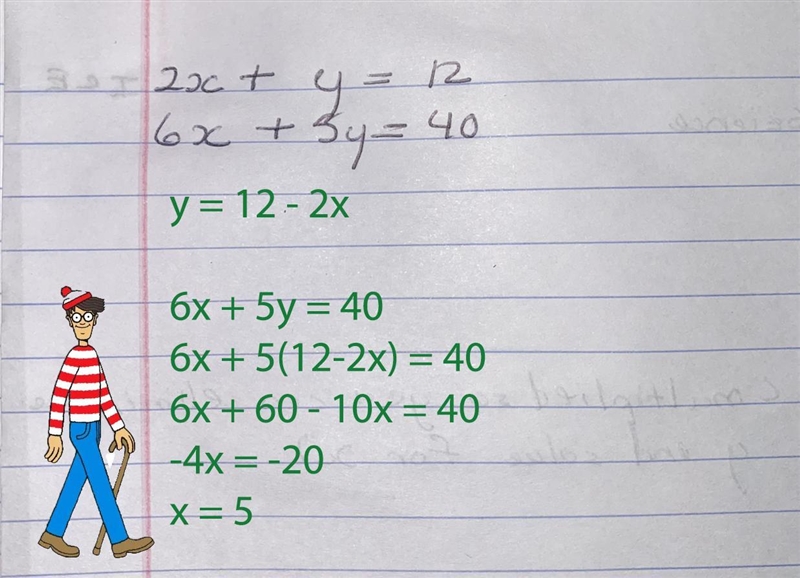 2x + y = 12
6x + 5y = 40
y = 12 - 2x
6x + 5y = 40
6x + 5(12-2x) = 40
6x + 60 - 10x = 40
-4x = -20
x = 5